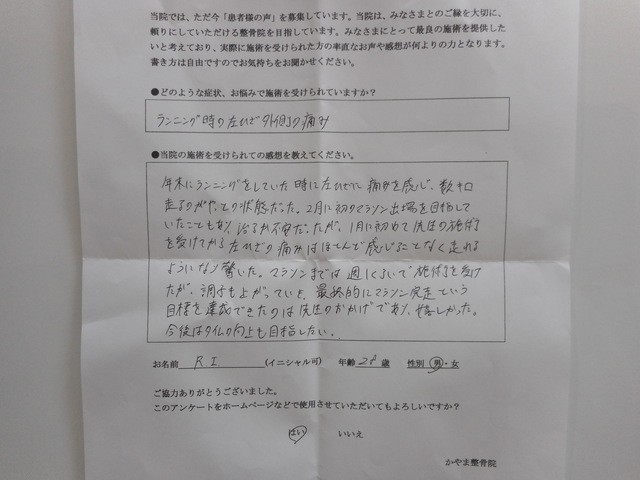 当院では、ただ今「患者様の声」を募集しています。当院は、みなさまとのご縁を大切に、
頼りにしていただける整骨院を目指しています。みなさまにとって最良の施術を提供した
いと考えており、実際に施術を受けられた方の率直なお声や感想が何よりの力となります。
書き方は自由ですのでお気持ちをお聞かせください。
●どのような症状、お悩みで施術を受けられていますか？
ランニング時の左ひざ外側の痛み
●当院の施術を受けられての感想を教えてください。
年末にランニングをしていた時に左ひざに痛みを感じ、数キロ
走るのがやっとの状態だった。2月に初のマラソン出場を目指して
いたこともあり、治るか不安だったが、1月に初めて先生の施術
を受けてから左ひざの痛みはほとんど感じることなく走れる
ようになり驚いた。マラソンまでは週1くらいで施術を受け
たが、調子も上がっていき、最終的にマラソン完走という
目標を達成できたのは先生のおかげであり、嬉しかった。
今後はタイムの向上も目指したい。
お名前 R.I （イニシャル可） 年齢 28 歳 性別 男・女
ご協力ありがとうございました。
このアンケートをホームページなどで使用させていただいてもよろしいですか？
はい いいえ
かやま整骨院